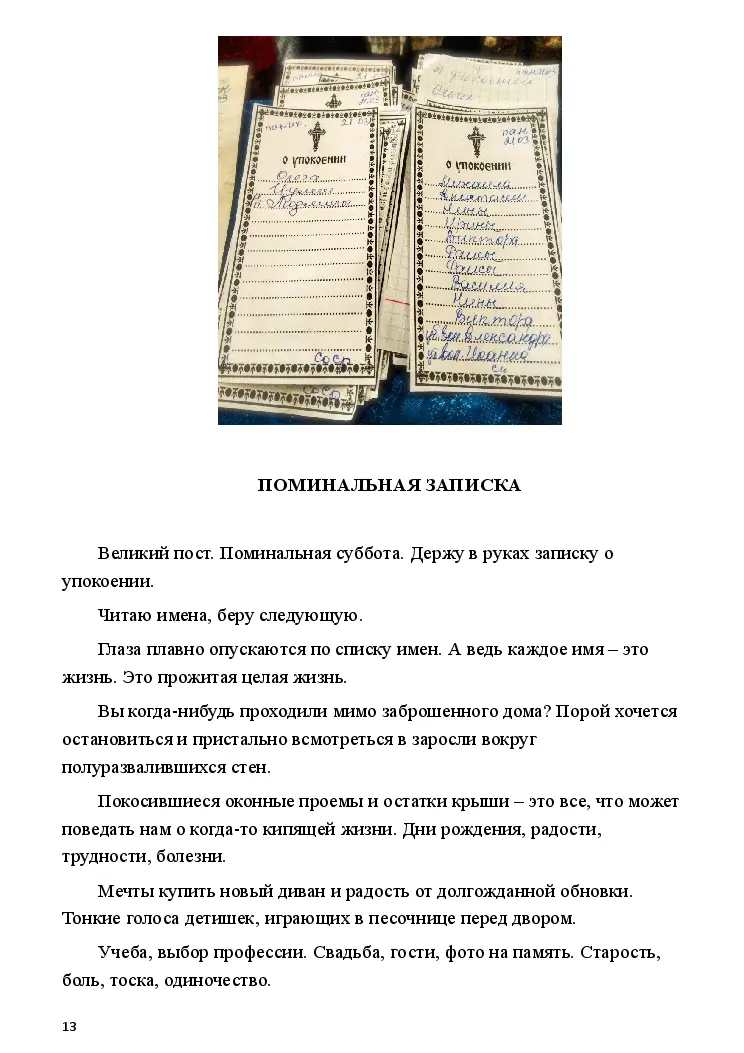 21.03
о упокоении
Олега
СОСП
СОСП
Ольги
пан.
21.03
о упокоении
Михаила
Анастасии
Нины
Нины
Виктора
Раисы
Раисы
Василия
Нины
Виктора
Александра
Иоанна
ПОМИНАЛЬНАЯ ЗАПИСКА
Великий пост. Поминальная суббота. Держу в руках записку о
упокоении.
Читаю имена, беру следующую.
Глаза плавно опускаются по списку имен. А ведь каждое имя – это
жизнь. Это прожитая целая жизнь.
Вы когда-нибудь проходили мимо заброшенного дома? Порой хочется
остановиться и пристально всмотреться в заросли вокруг
полуразвалившихся стен.
Покосившиеся оконные проемы и остатки крыши – это все, что может
поведать нам о когда-то кипящей жизни. Дни рождения, радости,
трудности, болезни.
Мечты купить новый диван и радость от долгожданной обновки.
Тонкие голоса детишек, играющих в песочнице перед двором.
Учеба, выбор профессии. Свадьба, гости, фото на память. Старость,
боль, тоска, одиночество.
13